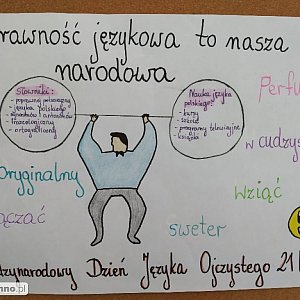 rawność językowa to nasza
narodowa
Słowniki:
- poprawnej polszczyzny
- języka polskiego
- synonimów i antonimów
- frazeologiczny
- ortograficzny
Nauka języka
polskiego:
- kursy
- szkoła
- programy telewizyjne
- książka
Perfu
w cudzys
oryginalny
wziąć
ączać
sweter
dzynarodowy Dzień Języka Ojczystego 21 l
nno.pl